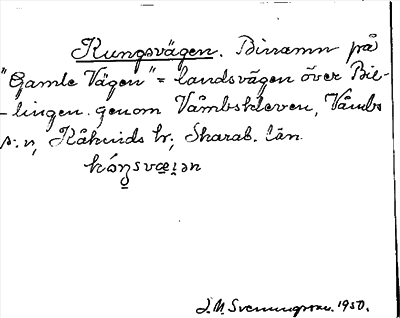 Kungsvägen. Binamn på
"Gamla Vägen" = landsvägen över Bil-
-lingen genom Våmbskleven, Våmbs
s:n, Kåkinds hr; Skarab. län.
J.M. Svenungsson. 1930.